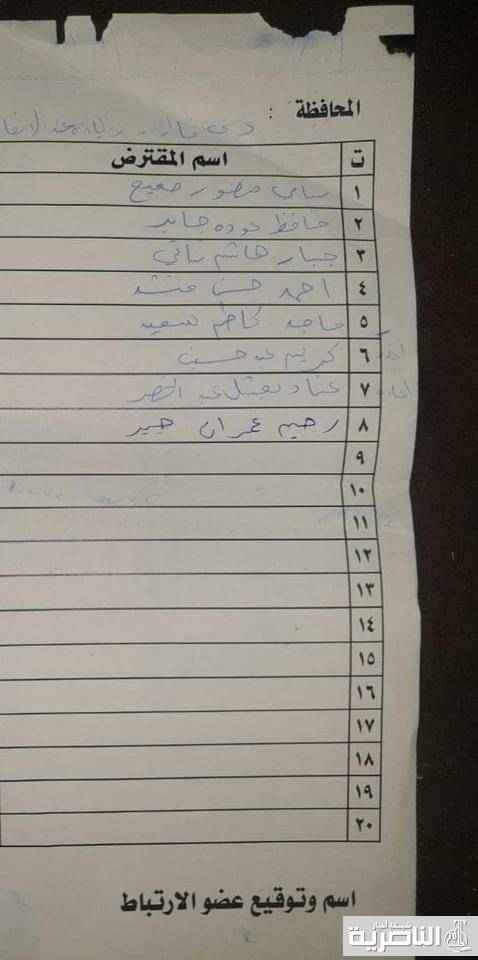 المحافظة :
ذي قار
ت اسم المقترض
١ سامي منصور
٢ حافظ عوده جابر
٣ جبار هاشم
٤ احمد حسن منشد
٥ ماجد كاظم سعيد
٦ كريم عبد حسن
٧ عناد عبد الخضر
٨ رحيم عمران جبر
٩
١٠
١١
١٢
١٣
١٤
١٥
١٦
١٧
١٨
١٩
٢٠
اسم وتوقيع عضو الارتباط
شبكة أخبار
الناصرية